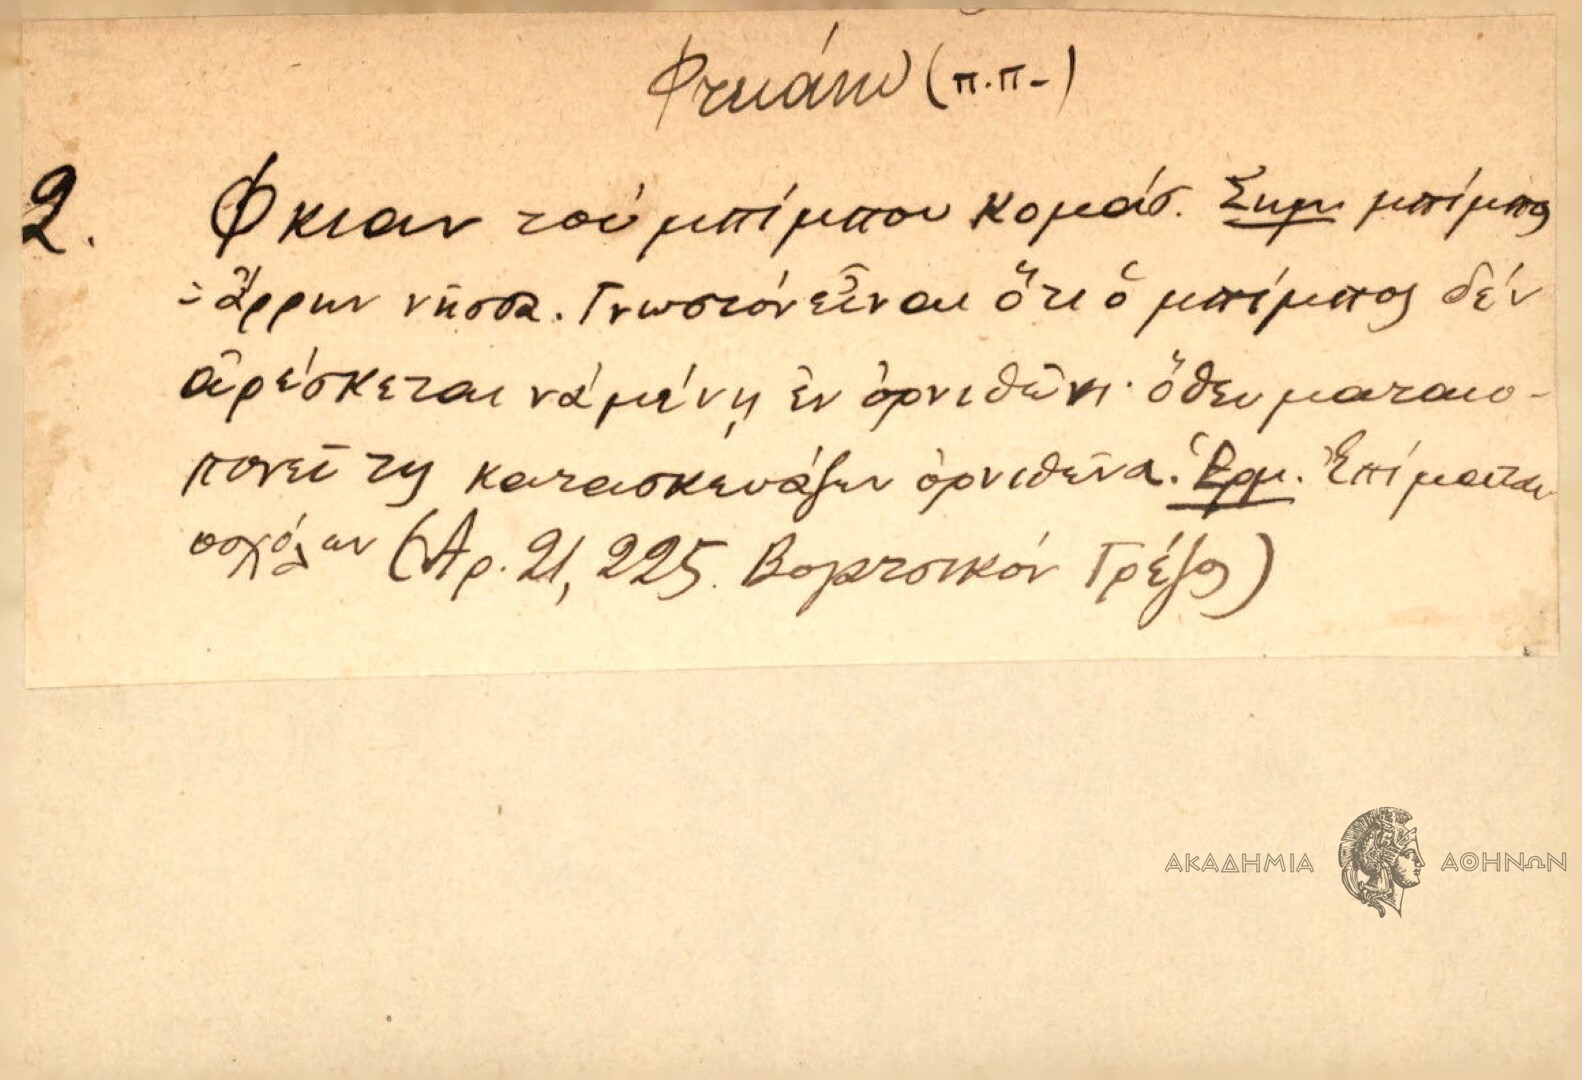 Φτιάνω (π.π-)
2. Φκιαν τού μπίμπου κομάσ. Σημ. μπίμπος
= ἄρρην νῆσσα. Γνωστόν εἶναι ὅτι ὁ μπίμπος δέν
ἀρέσκεται νά μένῃ ἐν ὀρνιθῶνι· ὅθεν ματαιο-
πονεῖ τις κατασκευάζων ὀρνιθῶνα. Ἑρμ. Ἐπί ματαιο
(Ἀρ. 21, 225. Βορτσικόν Γρέζος)
ΑΚΑΔΗΜΙΑ ΑΘΗΝΩΝ